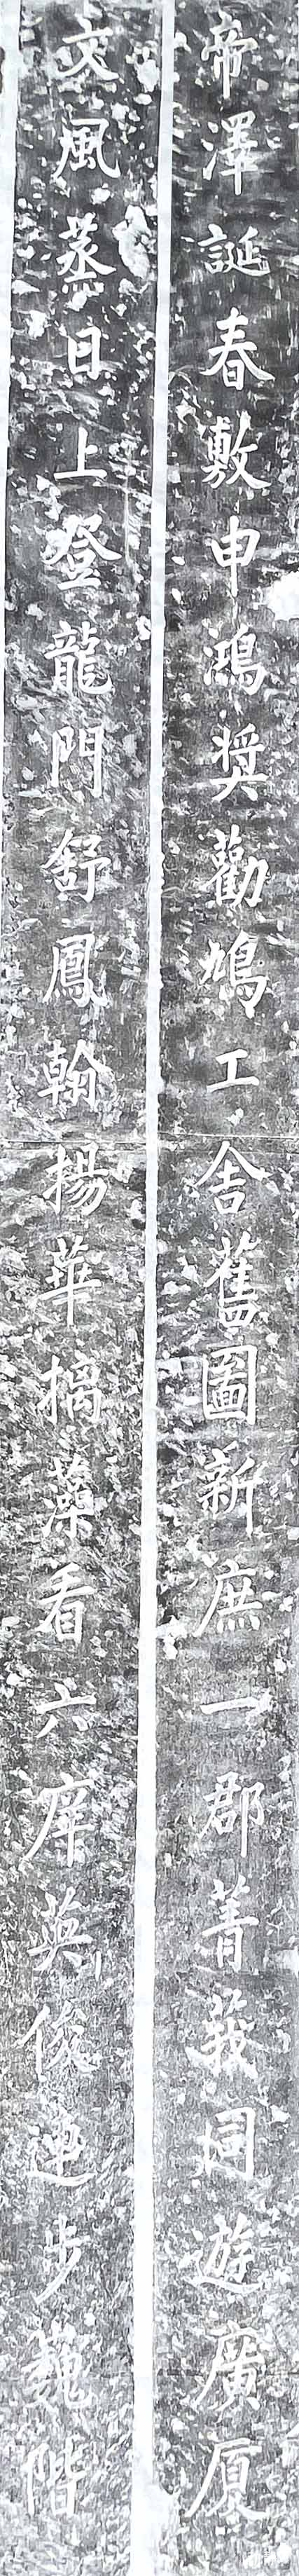 帝澤誕春敷申鴻奬勸鳩工舍舊圖新庶一郡菁莪同遊廣厦
文風蒸日上登龍門舒鳳翰揚華摛藻看六庠英俊迅步巍階